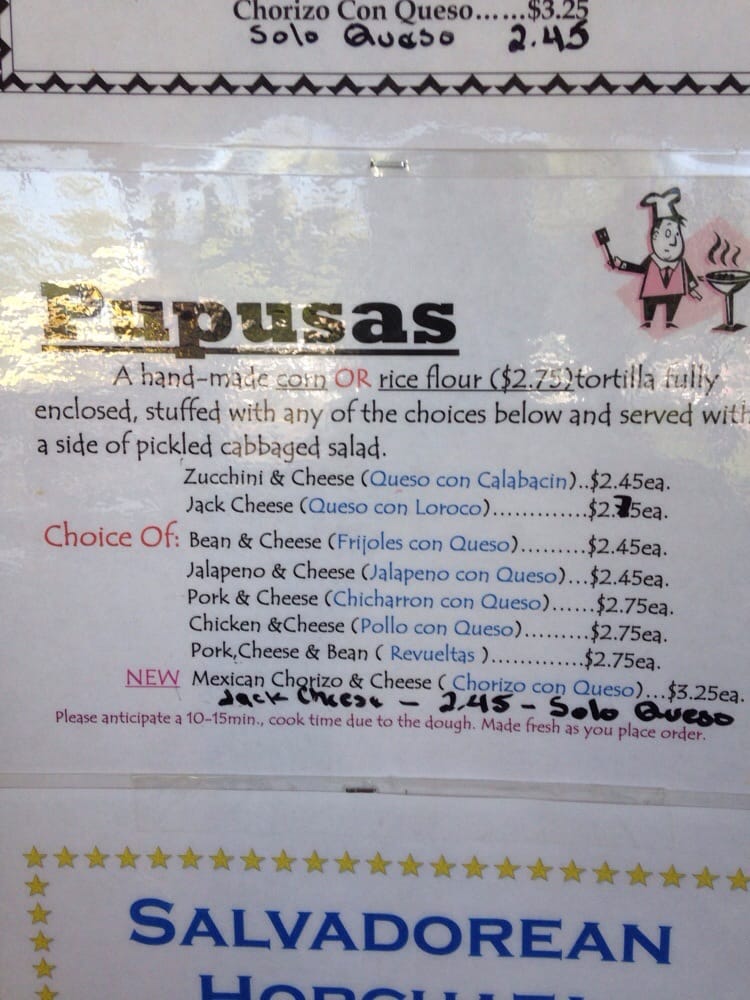 Chorizo Con Queso......$3.25
Solo Queso 2.45
Pupusas
A hand-made corn OR rice flour ($2.75)tortilla fully
enclosed, stuffed with any of the choices below and served with
a side of pickled cabbaged salad.
Zucchini & Cheese (Queso con Calabacin)..$2.45ea.
Jack Cheese (Queso con Loroco).............$2.75ea.
Choice Of: Bean & Cheese (Frijoles con Queso).........$2.45ea.
Jalapeno & Cheese (Jalapeno con Queso)...$2.45ea.
Pork & Cheese (Chicharron con Queso)......$2.75ea.
Chicken &Cheese (Pollo con Queso).........$2.75ea.
Pork,Cheese & Bean ( Revueltas ).............$2.75ea.
NEW Mexican Chorizo & Cheese ( Chorizo con Queso)...$3.25ea.
Jack Cheese - 2.45 - Solo Queso
Please anticipate a 10-15min., cook time due to the dough. Made fresh as you place order.
SALVADOREAN